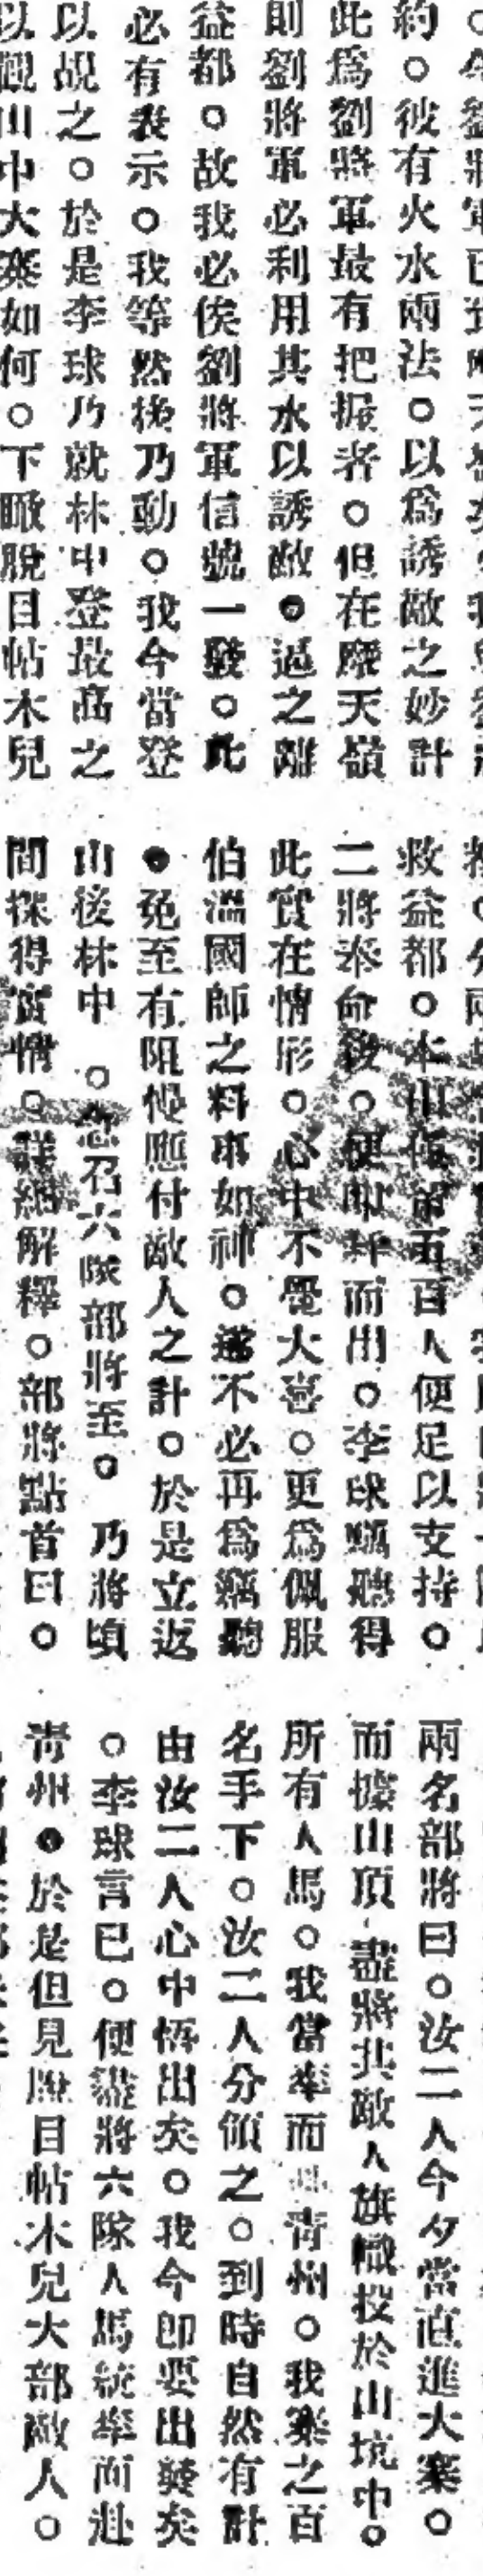 約。彼有火水兩法。以爲誘敵之妙計
此爲劉將軍最有把握者。但在摩天嶺
則劉將軍必利用其水以誘敵。過之離
益都。故我必俟劉將軍信號一發。此
必有表示。我等然後乃動。我今當登
以覘之。於是李球乃就林中登最高之
以觀山中大寨如何。下瞰脫目帖木兒
救益都。本山僅留五百人便足以支持。
二將奉命後。便即辭而出。李球竊聽得
此實在情形。心中不覺大喜。更爲佩服
伯溫國師之料事如神。遂不必再爲竊聽
。免至有阻便應付敵人之計。於是立返
山後林中。急召六隊部將至。乃將頃
間探得實情。詳細解釋。部將點首曰。
兩名部將曰。汝二人今夕當直進大寨。
而據山頂 盡將其敵人旗幟投於山坑中。
所有人馬。我當率而 青州。我寨之百
名手下。汝二人分領之。到時自然有計
由汝二人心中悟出矣。我今即要出發矣
。李球言已。便盡將六隊人馬統率而赴
青州。於是但見脫目帖木兒大部敵人。